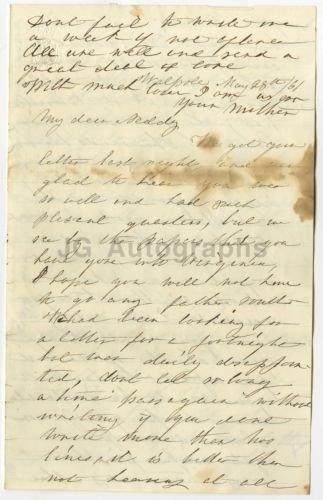 Dont fail to write once
a week if not oftener
All are well and send a
great deal of love
With much love I am as ever
Your Mother
Walpole, May 28th /61
My dear Neddy
We got your
letter last night and
glad to hear you were
so well and had such
pleasant quarters, but we
see by the papers that you
have gone into Virginia,
I hope you will not have
to go any father south
We had been looking for
a letter for a fortnight
but was daily disappoin
ted, dont let so long
a time pass again without
writing if you dont
write more than two
lines, it is better than
not hearing at all
JG Autographs